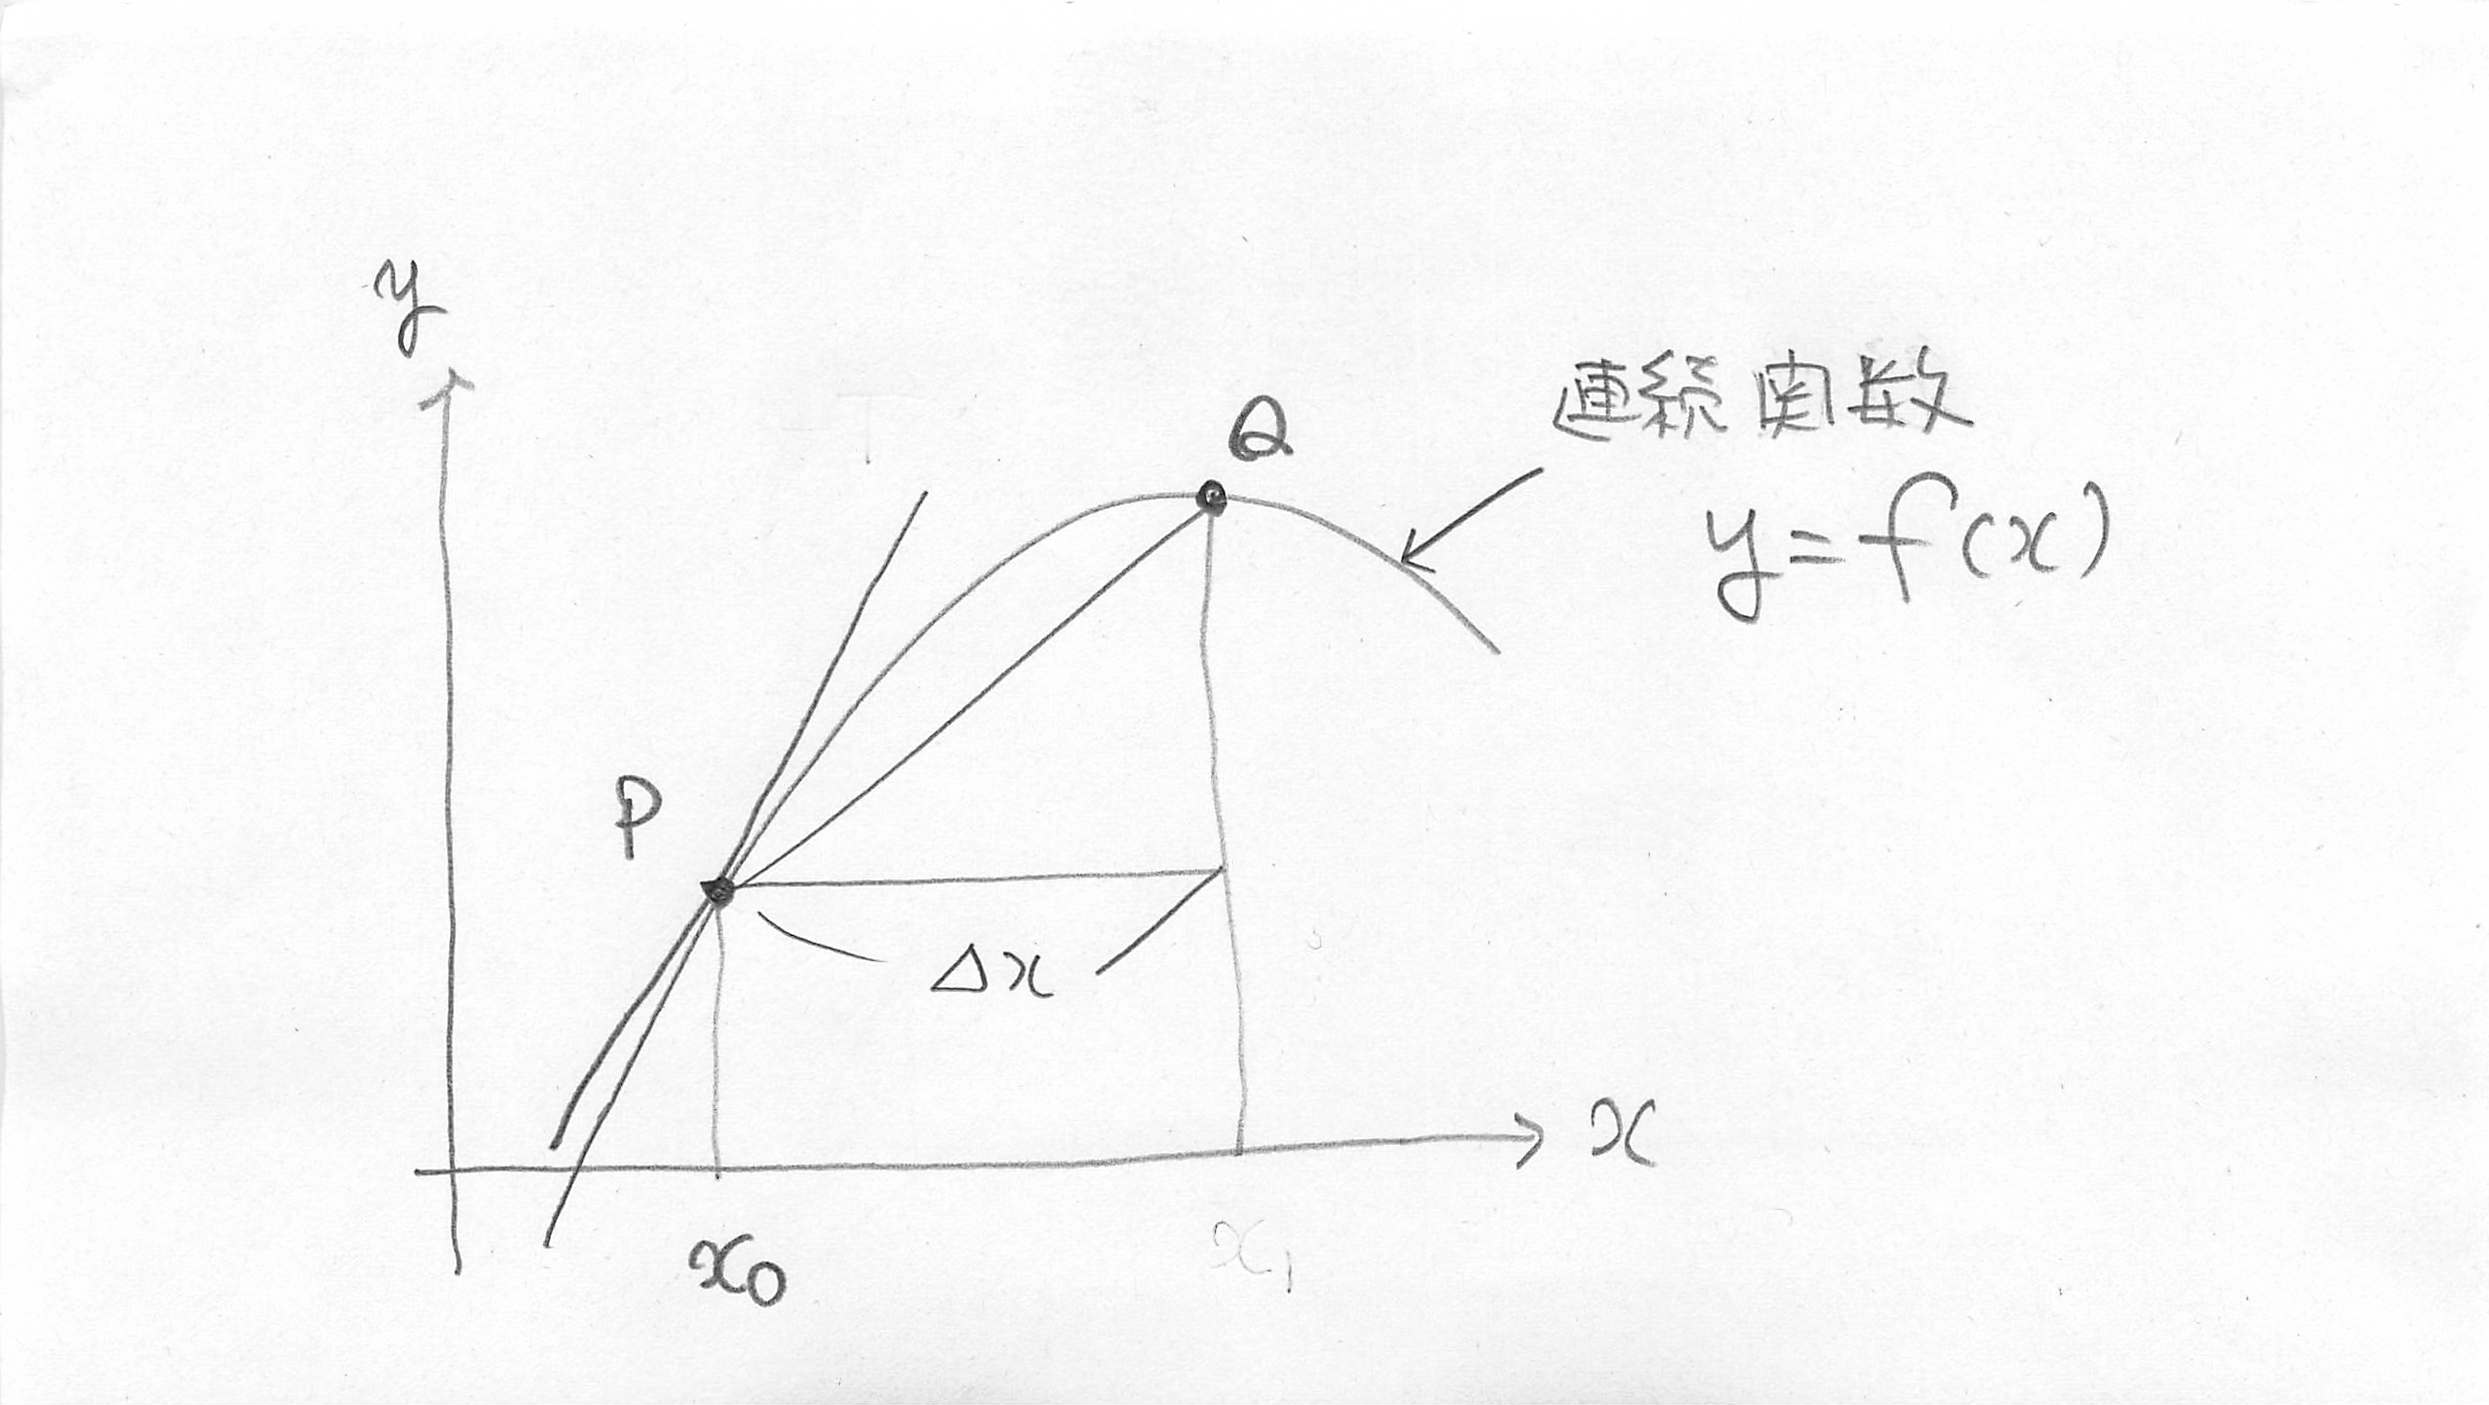 y
連続関数
Q
y=f(x)
P
Δx
x
x₀
x₁